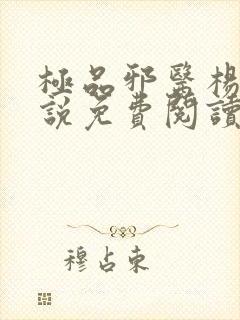 極品邪醫楊
說免費閱讀
穆占東